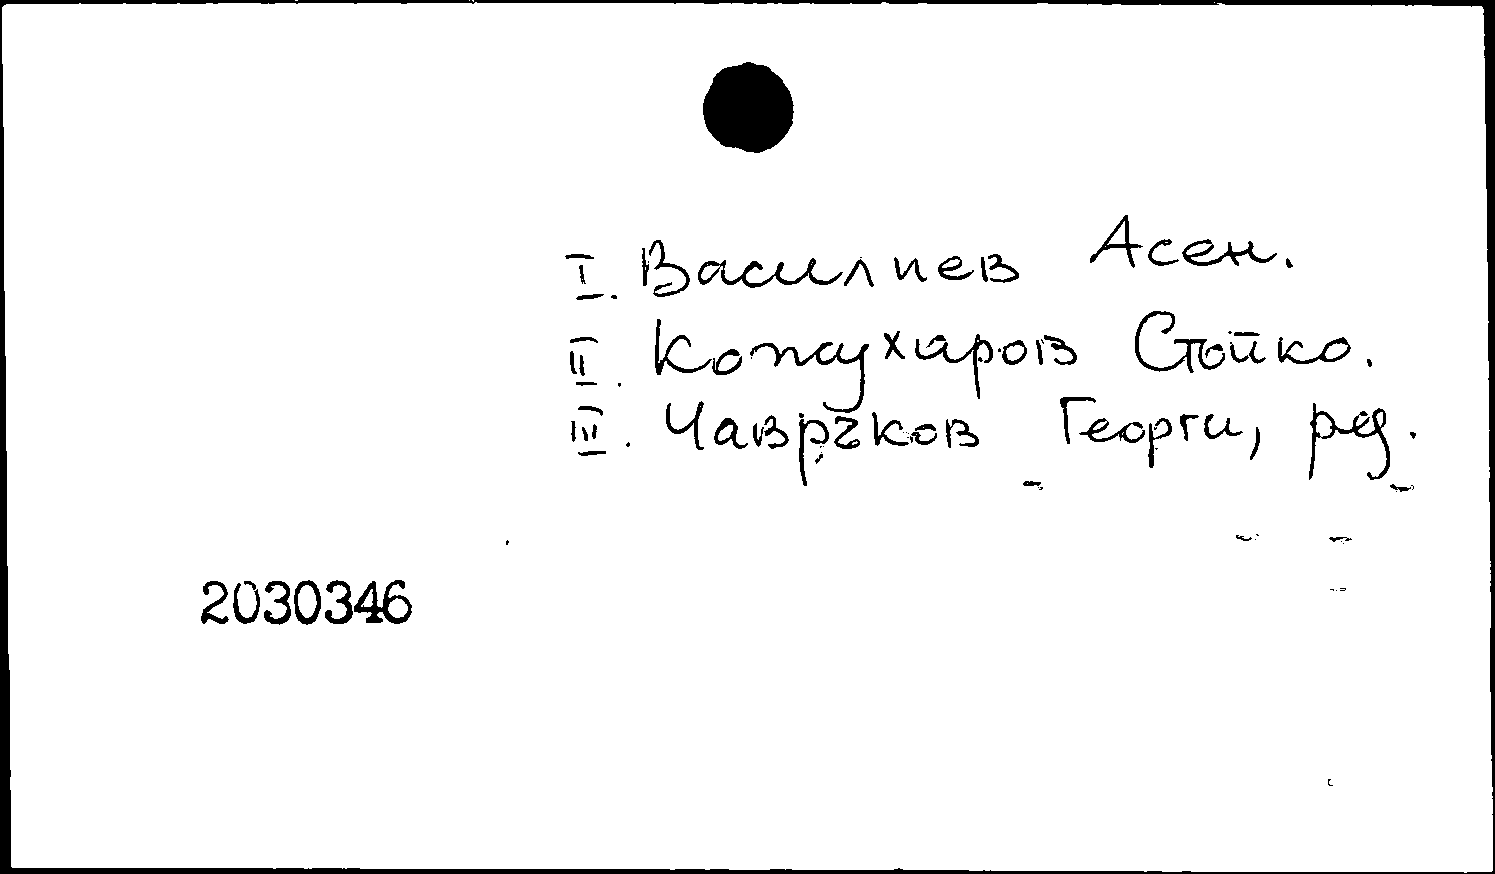 I. Василиев Асен.
II. Кожухаров Стойко.
III. Чавръков Георги, ред.
2030346